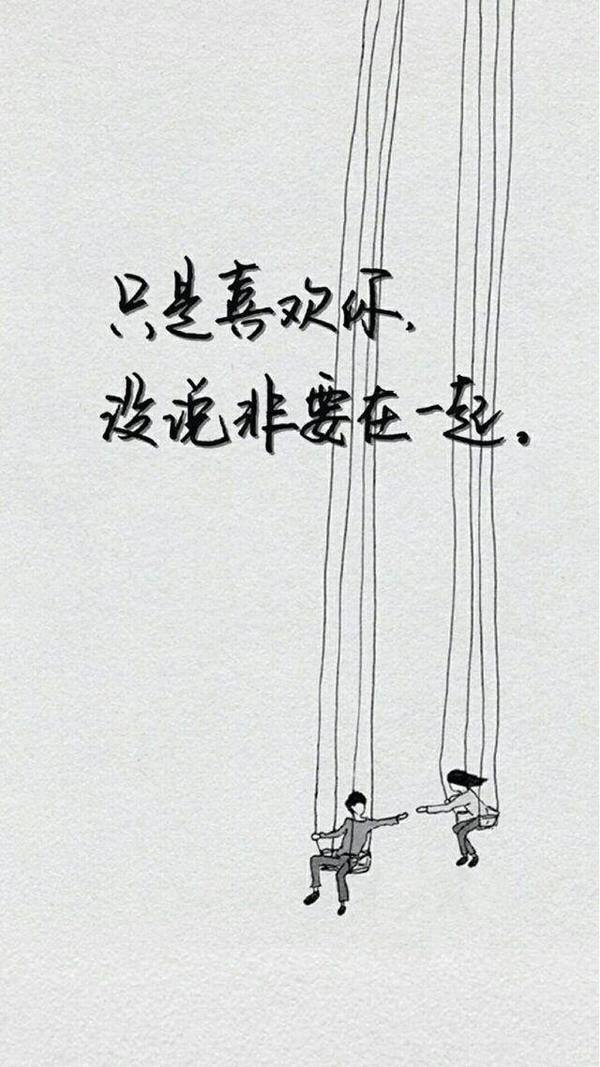 只是喜欢你,
没说非要在一起。